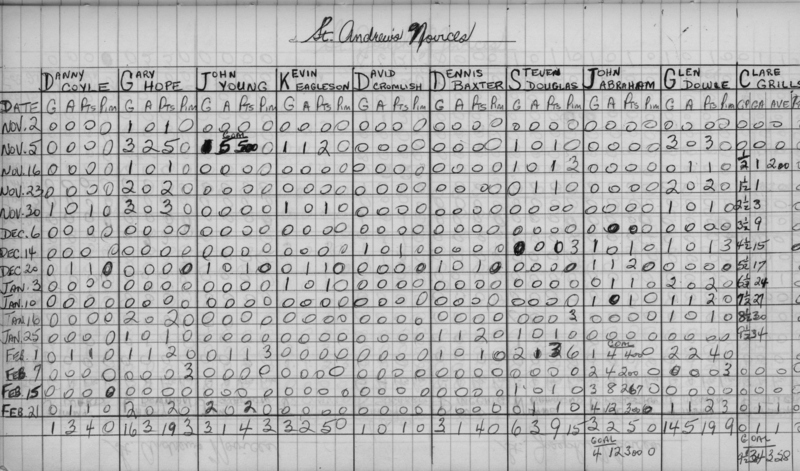 St. Andrew's Novices
DANNY COYLE GARY HOPE JOHN YOUNG KEVIN EAGLESON DAVID CROMLISH DENNIS BAXTER STEVEN DOUGLAS JOHN ABRAHAM GLEN DOWLE CLARE GRILLS
DATE G A Pts Pim G A Pts Pim G A Pts Pim G A Pts Pim G A Pts Pim G A Pts Pim G A Pts Pim G A Pts Pim G A Pts Pim GP GA AVE
NOV. 2 0 0 0 0 1 0 1 0 0 0 0 0 0 0 0 0 0 0 0 0 0 0 0 0 0 0 0 0 0 0 0 0 0 0 0 0 0 0 0
GOAL
NOV. 5 0 0 0 0 3 2 5 0 1 5 500 1 1 2 0 0 0 0 0 0 0 0 0 1 0 1 0 0 0 0 0 3 0 3 0 0 0 0
NOV. 16 0 0 0 0 1 0 1 0 0 0 0 0 0 0 0 0 0 0 0 0 0 0 0 0 1 0 1 3 0 0 0 0 0 1 1 0 ½ 1 200
NOV. 23 0 0 0 0 2 0 2 0 0 0 0 0 0 0 0 0 0 0 0 0 0 0 0 0 0 1 1 0 0 0 0 0 2 0 2 0 1½ 1
NOV. 30 1 0 1 0 2 0 3 0 0 0 0 0 1 0 1 0 0 0 0 0 0 0 0 0 0 0 0 0 0 0 0 0 1 0 1 0 2½ 3
DEC. 6 0 0 0 0 0 0 0 0 0 0 0 0 0 0 0 0 0 0 0 0 0 0 0 0 0 0 0 0 0 0 0 0 0 0 0 0 3½ 9
DEC. 14 0 0 0 0 0 0 0 0 0 0 0 0 0 0 0 0 1 0 1 0 0 0 0 0 0 0 0 3 1 0 1 0 1 0 1 3 4½ 15
DEC 20 0 1 1 0 0 0 0 0 1 0 1 0 0 1 1 0 0 0 0 0 1 0 1 0 0 0 0 0 1 1 2 0 0 0 0 0 5½ 17
JAN. 3 0 0 0 0 0 0 0 0 0 0 0 0 1 0 1 0 0 0 0 0 0 0 0 0 0 0 0 0 0 1 1 0 2 0 2 0 6½ 24
JAN. 10 0 0 0 0 0 0 0 0 0 0 0 0 0 0 0 0 0 0 0 0 0 0 0 0 0 0 0 0 1 0 1 0 1 1 2 0 7½ 27
JAN 16 0 0 0 0 2 0 2 0 0 0 0 0 0 0 0 0 0 0 0 0 0 0 0 0 0 0 0 3 0 0 0 0 1 0 1 0 8½ 30
JAN. 25 0 0 0 0 1 0 1 0 0 0 0 0 0 0 0 0 0 0 0 0 1 1 2 0 1 0 1 0 0 0 0 0 0 0 0 0 9½ 34
GOAL
FEB. 1 0 1 1 0 1 1 2 0 0 1 1 3 0 0 0 0 0 0 0 0 1 0 1 0 2 1 3 6 1 4 400 2 2 4 0
FEB. 7 0 0 0 0 0 0 0 3 0 0 0 0 0 0 0 0 0 0 0 0 0 0 0 0 0 0 0 0 2 4 200 0 0 0 0 3 0 0 0
FEB. 15 0 0 0 0 0 0 0 0 0 0 0 0 0 0 0 0 0 0 0 0 0 0 0 0 1 0 1 0 3 8 267 0 0 0 0 0 0 0 0
FEB. 21 0 1 1 0 2 0 2 0 2 0 2 0 0 0 0 0 0 0 0 0 0 0 0 0 0 1 1 0 4 12 300 0 1 1 2 3 0 1 1
1 3 4 0 16 3 19 3 3 1 4 3 3 2 5 0 1 0 1 0 3 1 4 0 6 3 9 15 3 2 5 0 14 5 19 9 0 1 1
GOAL GOAL
4 12 300 0